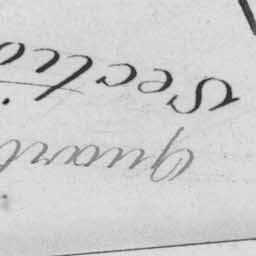 Quart
Sectio